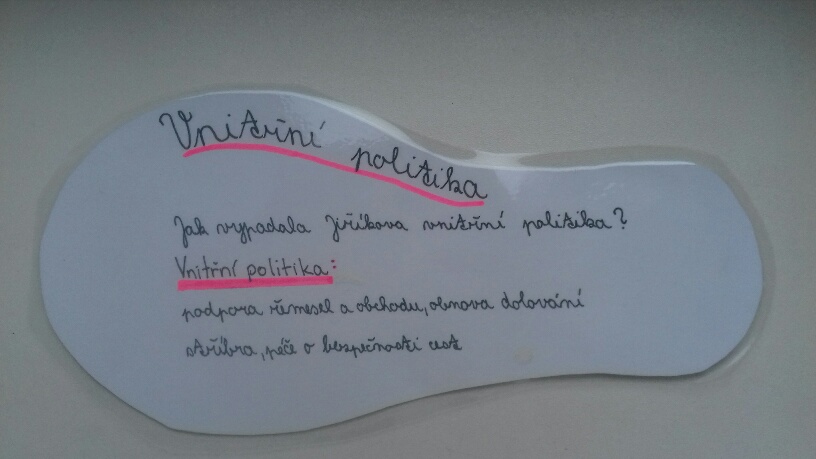 Vnitřní politika
Jak vypadala Jiříkova vnitřní politika?
Vnitřní politika:
podpora řemesel a obchodu, obnova dolování
stříbra, péče o bezpečnosti cest